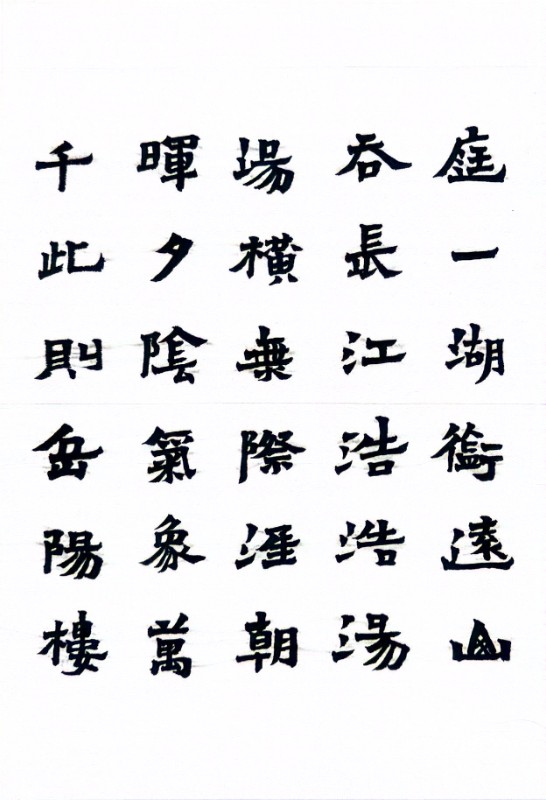 庭一湖銜遠山
吞長江浩浩湯
場橫無際涯朝
暉夕陰氣象萬
千此則岳陽樓